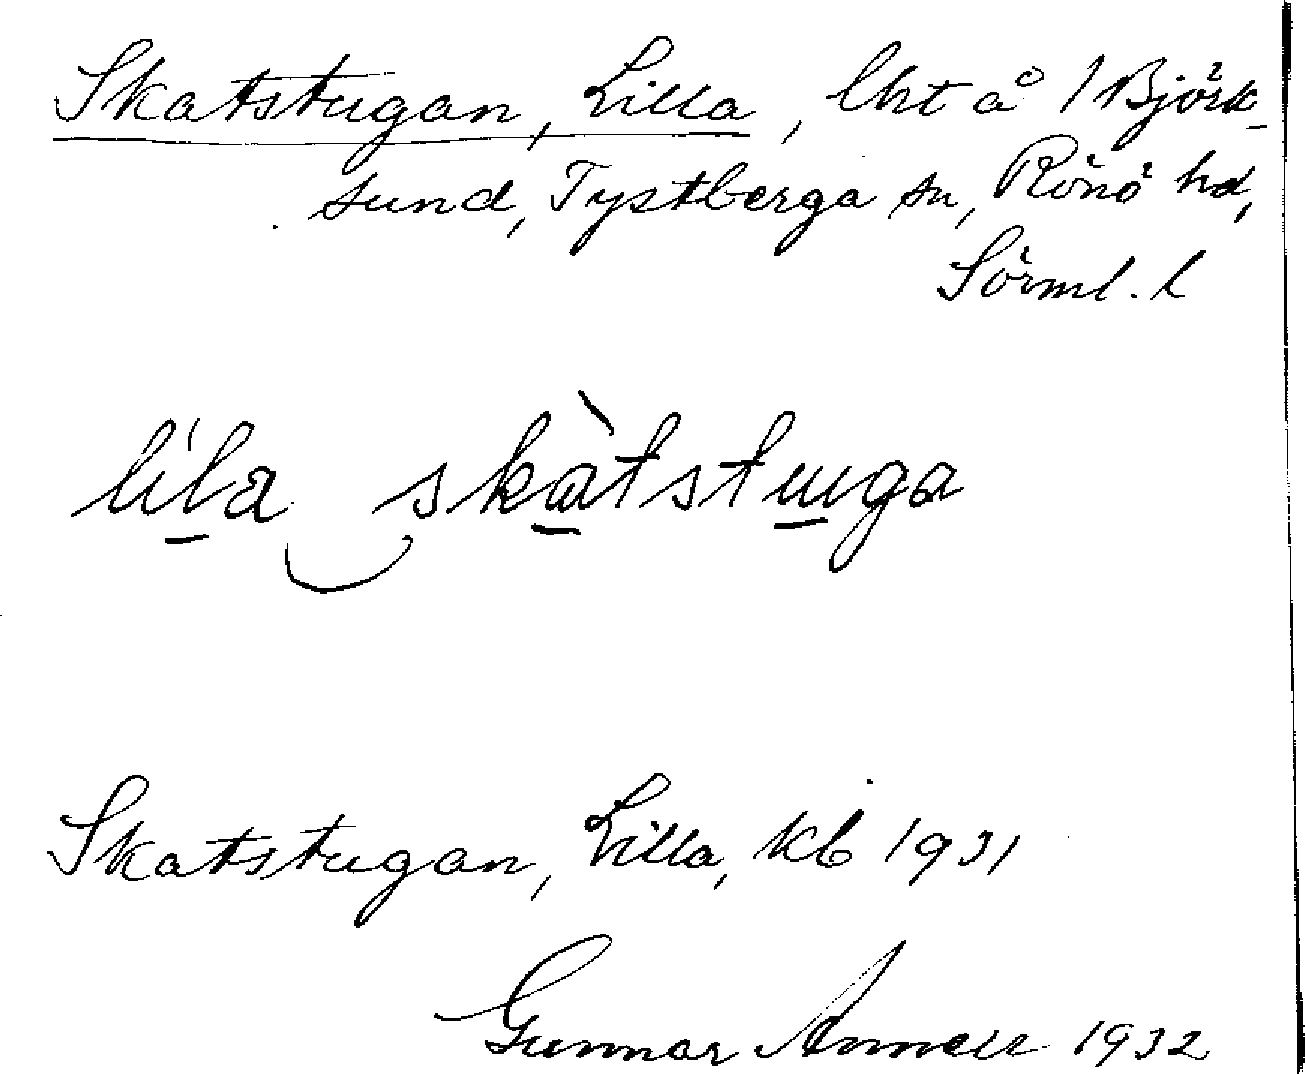 Skatstugan, Lilla, lht å 1 Björk-
sund, Tystberga sn, Rönö hd,
Sörml. l
lila skàtstuga
Skatstugan, Lilla, kb 1931
Gunnar Annell 1932